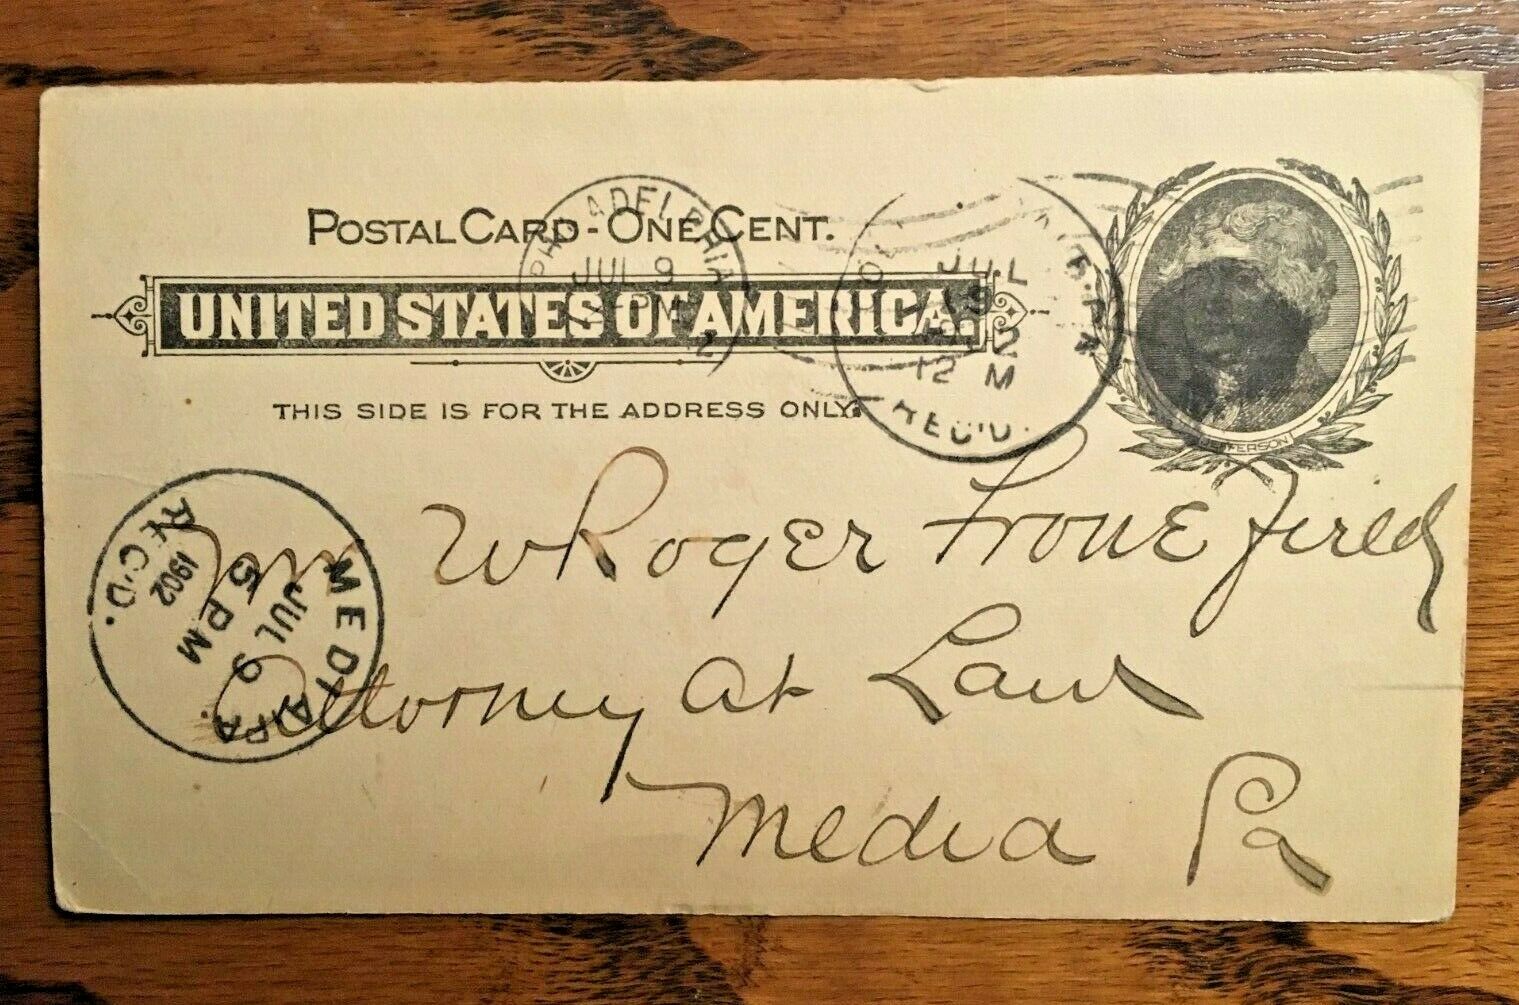 POSTAL CARD - ONE CENT.
UNITED STATES OF AMERICA.
THIS SIDE IS FOR THE ADDRESS ONLY.
JEFFERSON
PHILADELPHIA
JUL 9
PM
2
JUL
9
12 M
REC'D.
MEDIA PA.
JUL 9
5 PM
1902
REC'D.
W Roger Fronefield
Attorney at Law
Media Pa